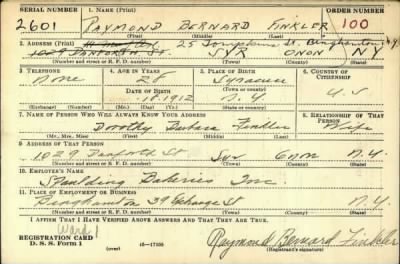 SERIAL NUMBER 1. NAME (Print) ORDER NUMBER
2601 RAYMOND BERNARD FINKLER 100
(First) (Middle) (Last)
2. ADDRESS (Print) 25 Tompkins St. Binghamton NY
1029 DANFORTH ST. SYR ONON NY
(Number and street or R. F. D. number) (Town) (County) (State)
3. TELEPHONE 4. AGE IN YEARS 5. PLACE OF BIRTH 6. COUNTRY OF CITIZENSHIP
None 28 Syracuse
DATE OF BIRTH (Town or county)
18 1912 N.Y. U.S
(Exchange) (Number) (Mo.) (Day) (Yr.) (State or country)
7. NAME OF PERSON WHO WILL ALWAYS KNOW YOUR ADDRESS 8. RELATIONSHIP OF THAT PERSON
Dorothy Barbara Finkler Wife
(Mr., Mrs., Miss) (First) (Middle) (Last)
9. ADDRESS OF THAT PERSON
1029 Danforth St Syr Onon N.Y.
(Number and street or R. F. D. number) (Town) (County) (State)
10. EMPLOYER'S NAME
Spaulding Bakeries Inc
11. PLACE OF EMPLOYMENT OR BUSINESS
Binghamton 39 Exchange St N.Y.
(Number and street or R. F. D. number) (Town) (County) (State)
I AFFIRM THAT I HAVE VERIFIED ABOVE ANSWERS AND THAT THEY ARE TRUE.
Ward 1
REGISTRATION CARD
D. S. S. Form 1 (over) 16—17105 Raymond Bernard Finkler
(Registrant's signature)